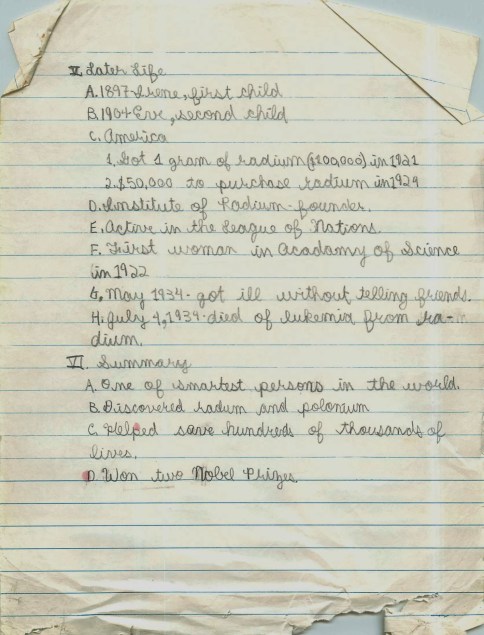 V. Later Life
A. 1897-Irene, first child
B. 1904 Eve, second child
C. America
1. Got 1 gram of radium ($100,000) in 1921
2. $50,000 to purchase radium in 1929
D. Institute of Radium-founder.
E. Active in the League of Nations.
F. First woman in Acadamy of Science
in 1922
G. May 1934- got ill without telling friends.
H. July 4, 1934-died of lukemia from ra-
dium.
VI. Summary
A. One of smartest persons in the world.
B. Discovered radum and polonium
C. Helped save hundreds of thousands of
lives.
D. Won two Nobel Prizes.